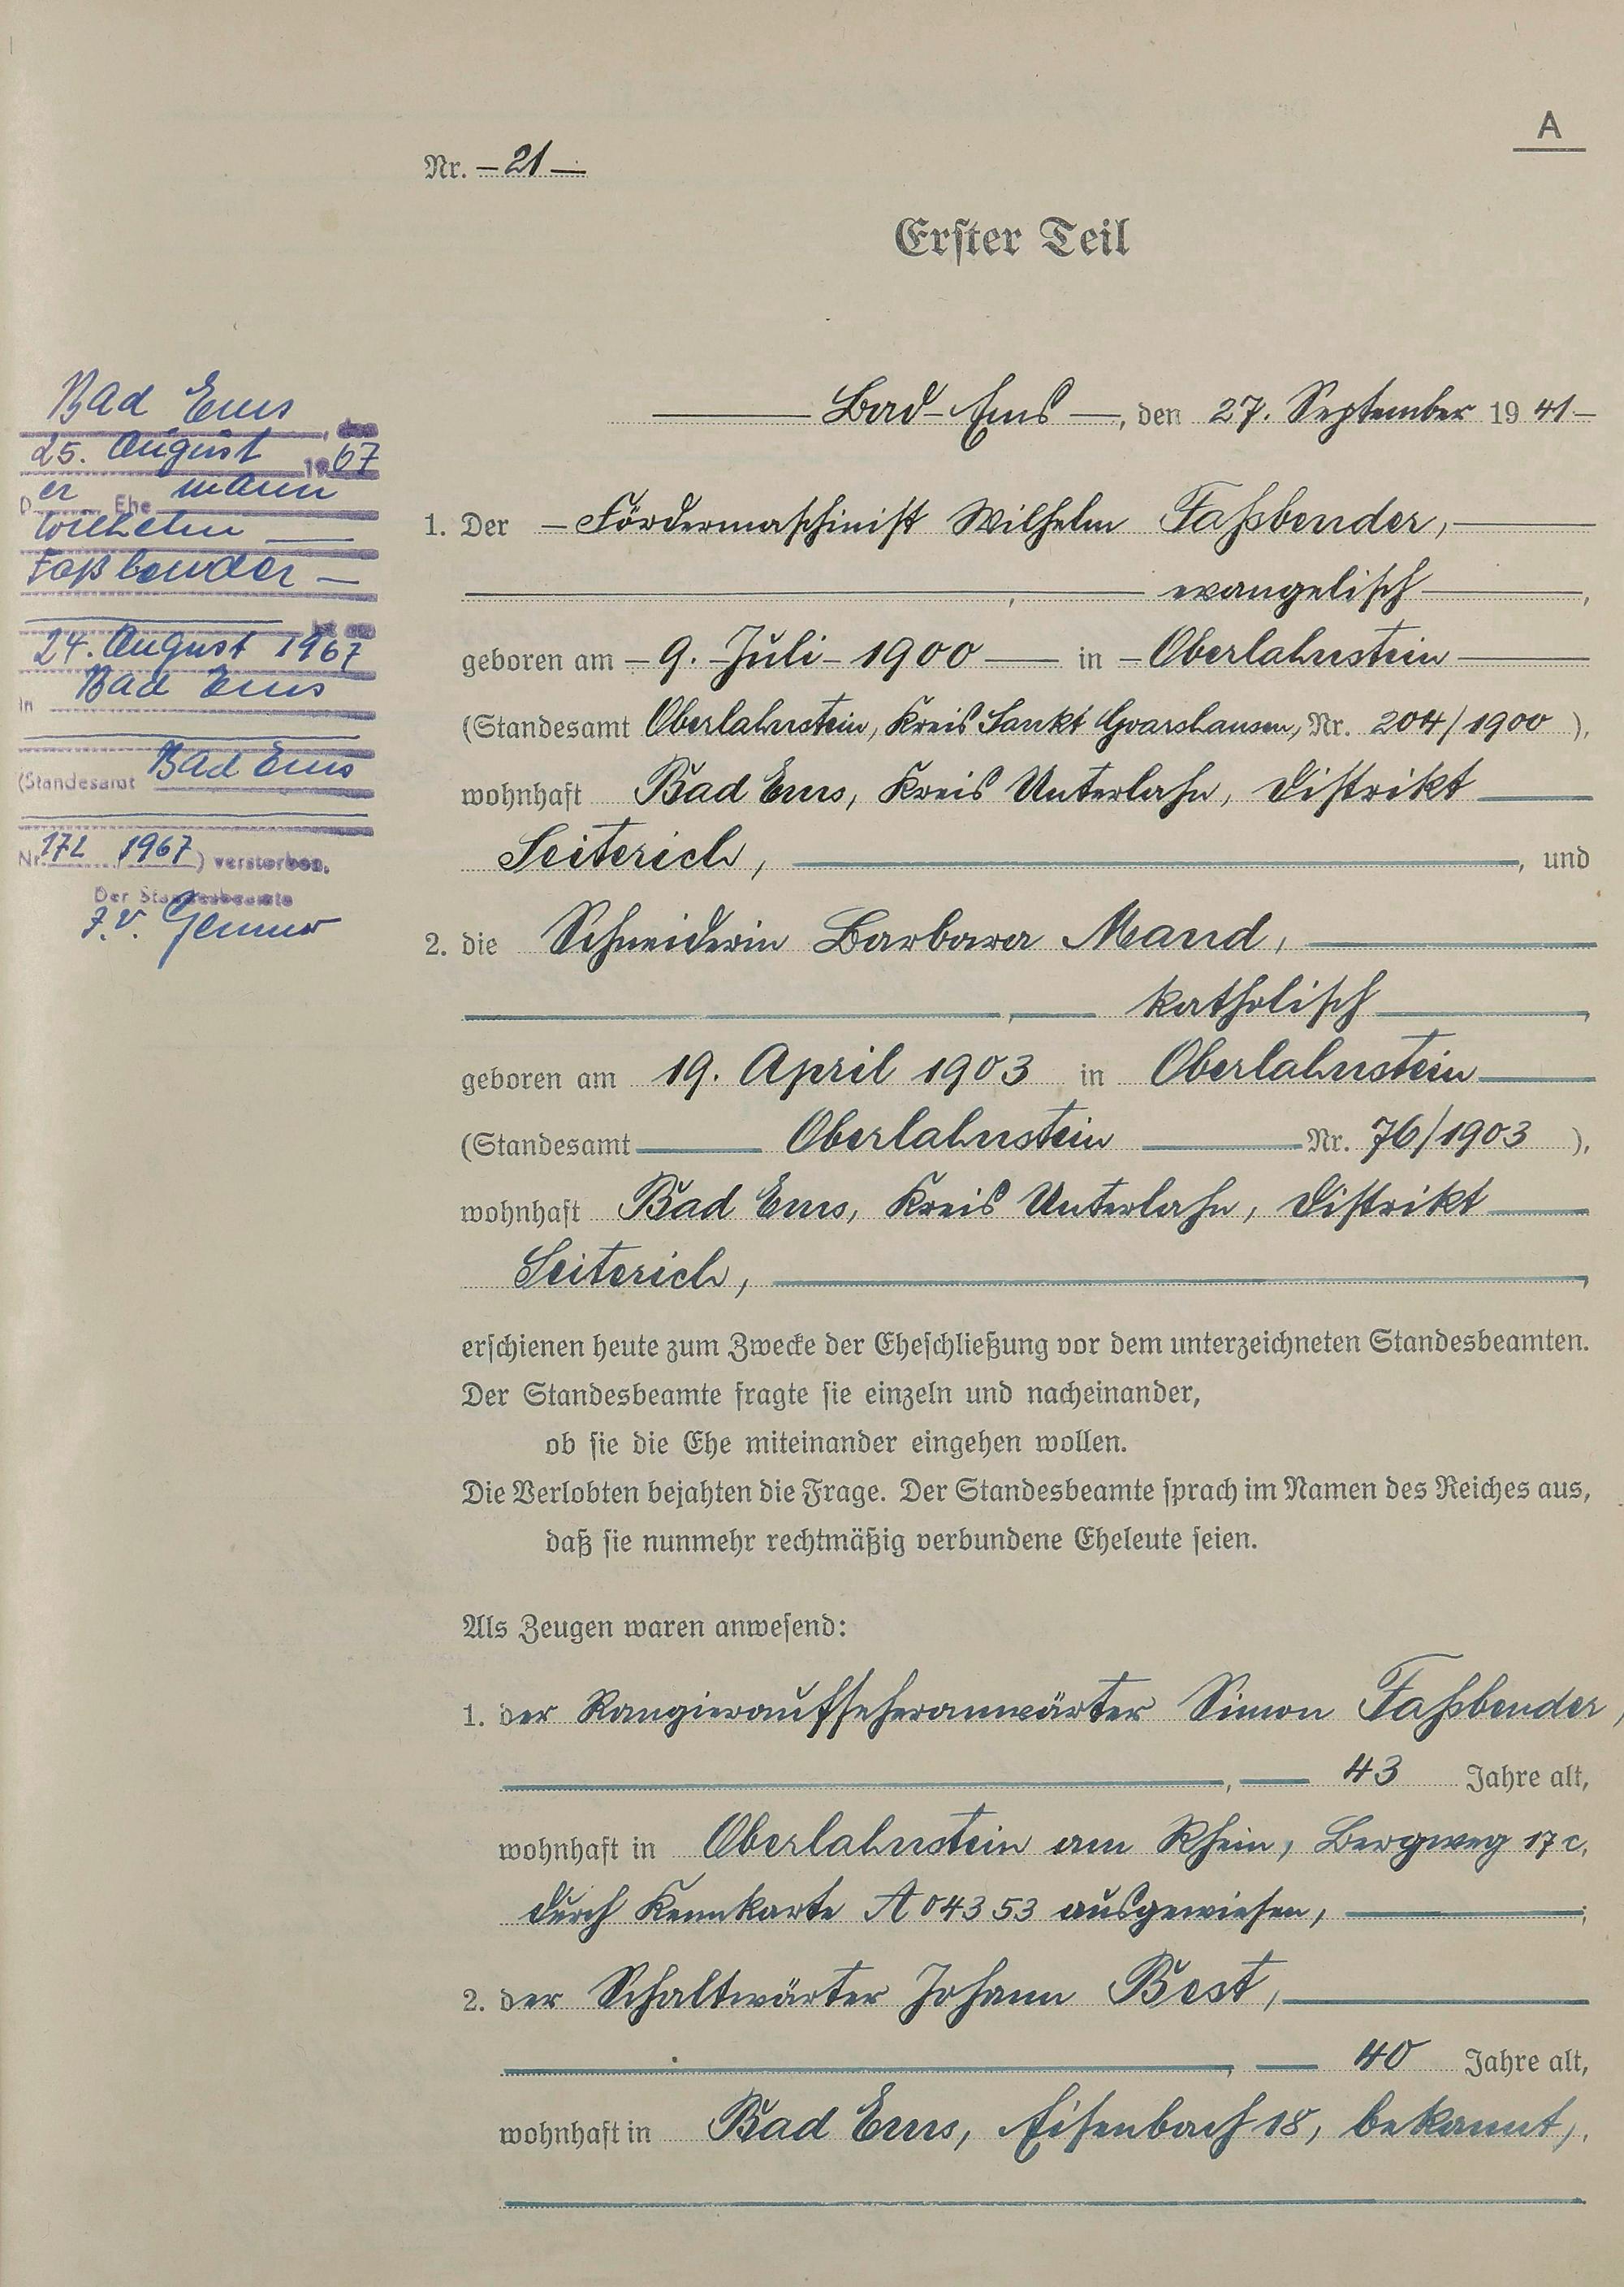 A
Nr. – 21 –
Erster Teil
Bad Ems, den
25. August 1967
Der Ehemann
Wilhelm —
Faßbender —
ist am
24. August 1967
in Bad Ems
(Standesamt Bad Ems
Nr. 172 / 1967) verstorben.
Der Standesbeamte
J.V.
Bad-Ems —, den 27. September 1941 –
1. Der – Fördermaschinist Wilhelm Faßbender, —
—, — evangelisch —,
geboren am – 9. Juli – 1900 — in – Oberlahnstein —
(Standesamt Oberlahnstein, Kreis Sankt Goarshausen, Nr. 204/1900 ),
wohnhaft Bad Ems, Kreis Unterlahn, Distrikt —
Seiterich, —, und
2. die Schneiderin Barbara Mand, —
—, — katholisch —,
geboren am 19. April 1903 in Oberlahnstein —
(Standesamt — Oberlahnstein — Nr. 76/1903 ),
wohnhaft Bad Ems, Kreis Unterlahn, Distrikt —
Seiterich, —,
erschienen heute zum Zwecke der Eheschließung vor dem unterzeichneten Standesbeamten.
Der Standesbeamte fragte sie einzeln und nacheinander,
ob sie die Ehe miteinander eingehen wollen.
Die Verlobten bejahten die Frage. Der Standesbeamte sprach im Namen des Reiches aus,
daß sie nunmehr rechtmäßig verbundene Eheleute seien.
Als Zeugen waren anwesend:
1. der Rangieraufseheranwärter Simon Faßbender,
—, — 43 Jahre alt,
wohnhaft in Oberlahnstein am Rhein, Bergweg 17c,
durch Kennkarte A 04353 ausgewiesen, —;
2. der Schaltwärter Johann Best, —
—, — 40 Jahre alt,
wohnhaft in Bad Ems, Eisenbach 18, bekannt,.